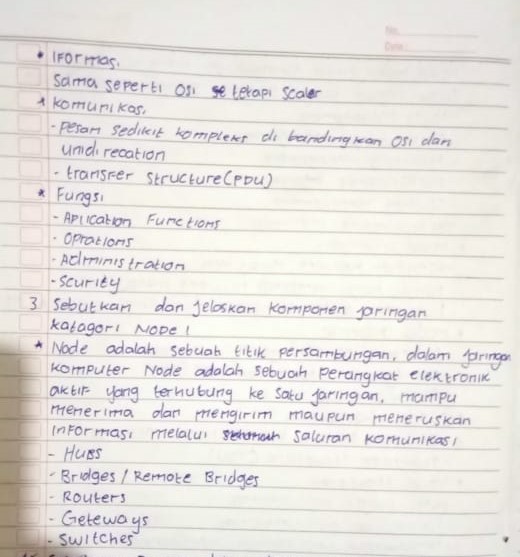 No.
Date.
* Iformasi
Sama seperti OSI tetapi scaler
* Komunikasi
- Pesan sedikit kompleks di bandingkan OSI dan
unidirecation
- transfer structure (PDU)
* Fungsi
- Aplication Functions
- Oprations
- Administration
- Scurity
3 Sebutkan dan jelaskan komponen jaringan
katagori NODE!
* Node adalah sebuah titik persambungan, dalam jaringan
komputer Node adalah sebuah perangkat elektronik
aktif yang terhubung ke satu jaringan, mampu
menerima dan mengirim maupun meneruskan
informasi melalui saluran komunikasi
- HUBS
- Bridges / Remote Bridges
- Routers
- Geteways
- Switches